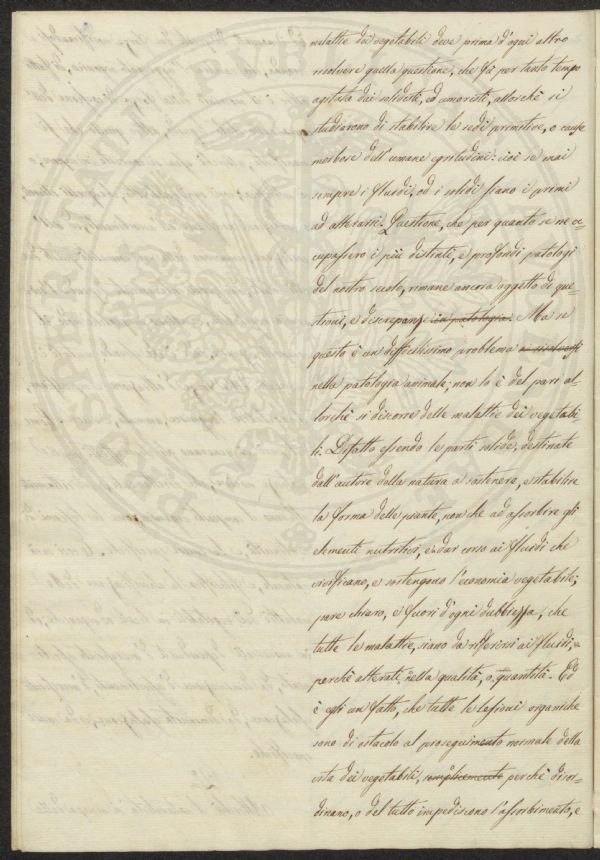 malattie dei vegetabili deve prima d'ogni altro
risolvere quella questione, che fù per tanto tempo
agitata dai solidisti, ed umoristi, allorchè si
studiarono di stabilire le sedi primitive, o cause
morbose dell'umane egritudini: cioè se mai
sempre i fluidi, od i solidi siano i primi
ad alterarsi. Questione, che per quanto se ne oc=
cupassero i più distinti, e profondi patologi
del nostro secolo, rimane ancora oggetto di que=
stioni, e discrepanze in patologia. Ma se
questo è un difficilissimo problema a risolversi
nella patologia animale; non lo è del pari al=
lorchè si discorre delle malattie dei vegetabi=
li. Difatto essendo le parti solide, destinate
dall'autore della natura a sostenere, e stabilire
la forma delle piante, non che ad assorbire gli
elementi nutritivi, e dar corso ai fluidi che
vivificano, e sostengono l'economia vegetabile;
pare chiaro, e fuori d'ogni dubbiezza, che
tutte le malattie, siano da riferirsi ai fluidi,
perchè alterati nella qualità, o quantità. Ed
è egli un fatto, che tutte le lesioni organiche
sono di ostacolo al proseguimento normale della
vita dei vegetabili, semplicemente perchè disor=
dinano, o del tutto impediscono l'assorbimento, e